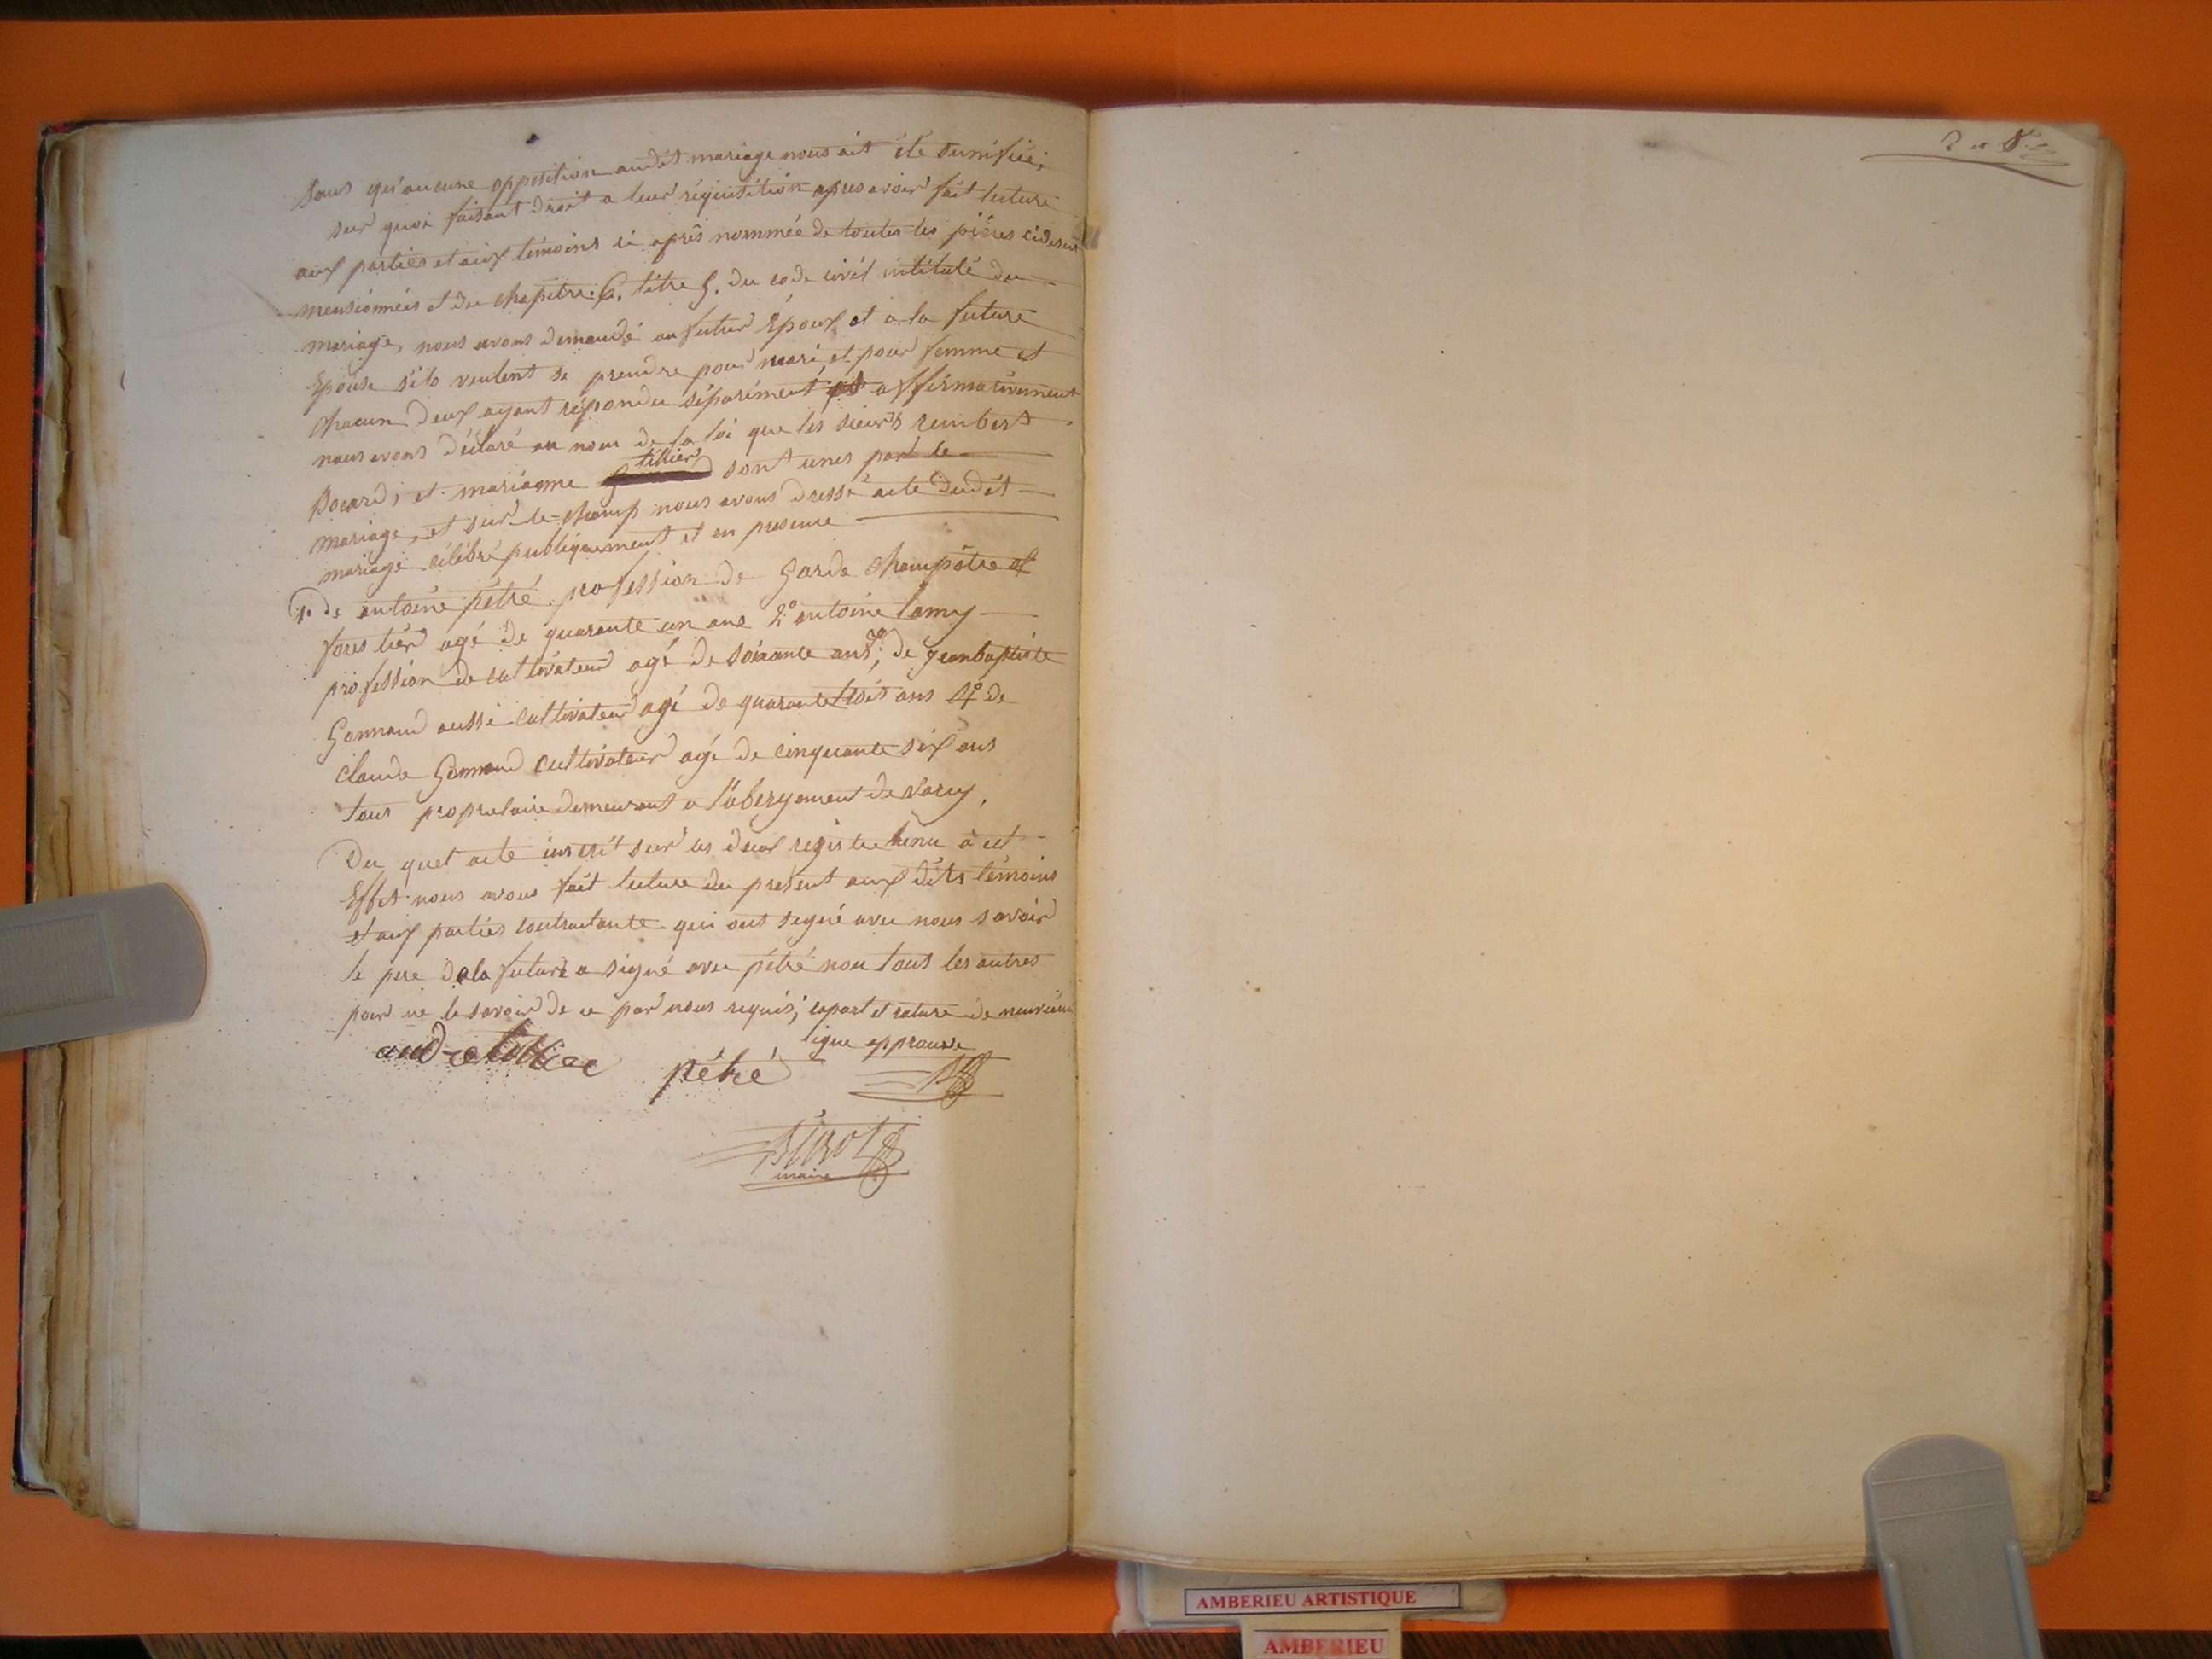 sans qu'aucune opposition audit mariage nous ait été sunifiée;
sur quoi faisant droit a leur réquisition apres avoir fait lecture
aux parties et aux témoins ci après nommée de toutes les pièces cidesus
mensionnées et du chapitre 6. titre 5. du code civil intitulé du
mariage, nous avons demandé au futur Epoux et a la future
Epouse s'ils veulent se prendre pour mari et pour femme et
chacun deux ayant répondu séparément affirmativement
nous avons déclaré au nom de la loi que les sieurs rembert
Bocard, et marianne tillier sont unis par le
mariage, et sur-le-champ nous avons dressé acte dudit
mariage célébré publiquement et en presence
1° de antoine pétré profession de garde champêtre et
forestier agé de quarante un ans 2° antoine lamy
profession de cultivateur agé de soixante ans, 3° de jeanbaptiste
Gonnand aussi cultivateur agé de quarante trois ans 4° de
claude Gonnand cultivateur agé de cinquante six ans
tous propretaire demeurant a l'abergement de varey,
Du quel acte inscrit sur les deux registre tenu à cet
Effet nous avons fait lecture du present aux dits témoins
et aux parties contractante qui ont signé avec nous savoir
le pere de la future a signé avec pétré non tous les autres
pour ne le savoir de ce par nous requis; rature de neuvieme
ligne approuve
andre tillier pétré
maire
AMBERIEU ARTISTIQUE
AMBERIEU